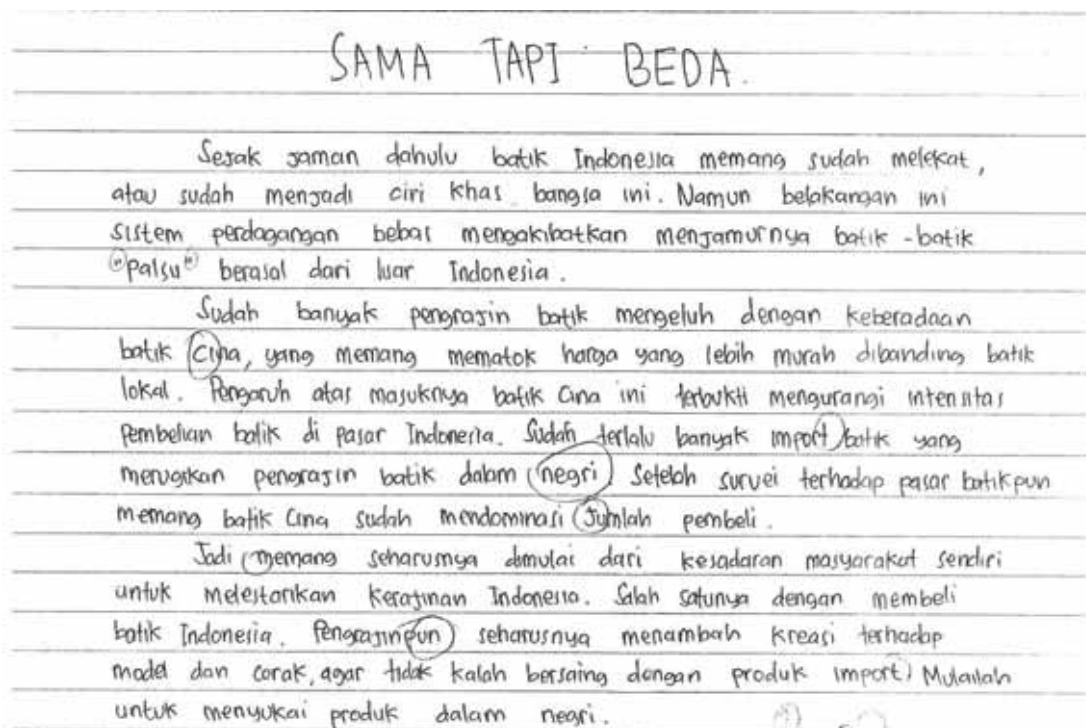 SAMA TAPI BEDA.
Sejak jaman dahulu batik Indonesia memang sudah melekat,
atau sudah menjadi ciri khas bangsa ini. Namun belakangan ini
sistem perdagangan bebas mengakibatkan menjamurnya batik-batik
"palsu" berasal dari luar Indonesia.
Sudah banyak pengrajin batik mengeluh dengan keberadaan
batik Cina, yang memang mematok harga yang lebih murah dibanding batik
lokal. Pengaruh atas masuknya batik Cina ini terbukti mengurangi intensitas
pembelian batik di pasar Indonesia. Sudah terlalu banyak import batik yang
merugikan pengrajin batik dalam negri. Setelah survei terhadap pasar batikpun
memang batik Cina sudah mendominasi jumlah pembeli.
Jadi memang seharusnya dimulai dari kesadaran masyarakat sendiri
untuk melestarikan kerajinan Indonesia. Salah satunya dengan membeli
batik Indonesia. Pengrajinpun seharusnya menambah kreasi terhadap
model dan corak, agar tidak kalah bersaing dengan produk import. Mulailah
untuk menyukai produk dalam negri.